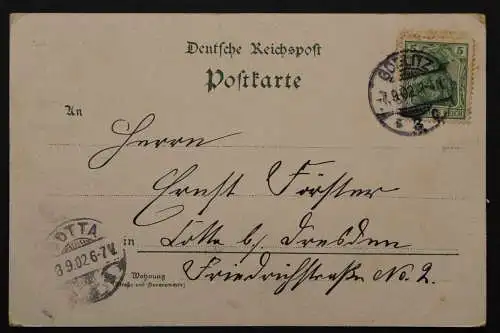 Deutsche Reichspost
Postkarte
5 5
GÖRLITZ
7.9.02.
An
Herrn
Ernst Förster
in Cotta b/ Dresden
Friedrichstraße No. 2.
Wohnung
(Straße und Hausnummer)
COTTA
8 9.02.6-7V.